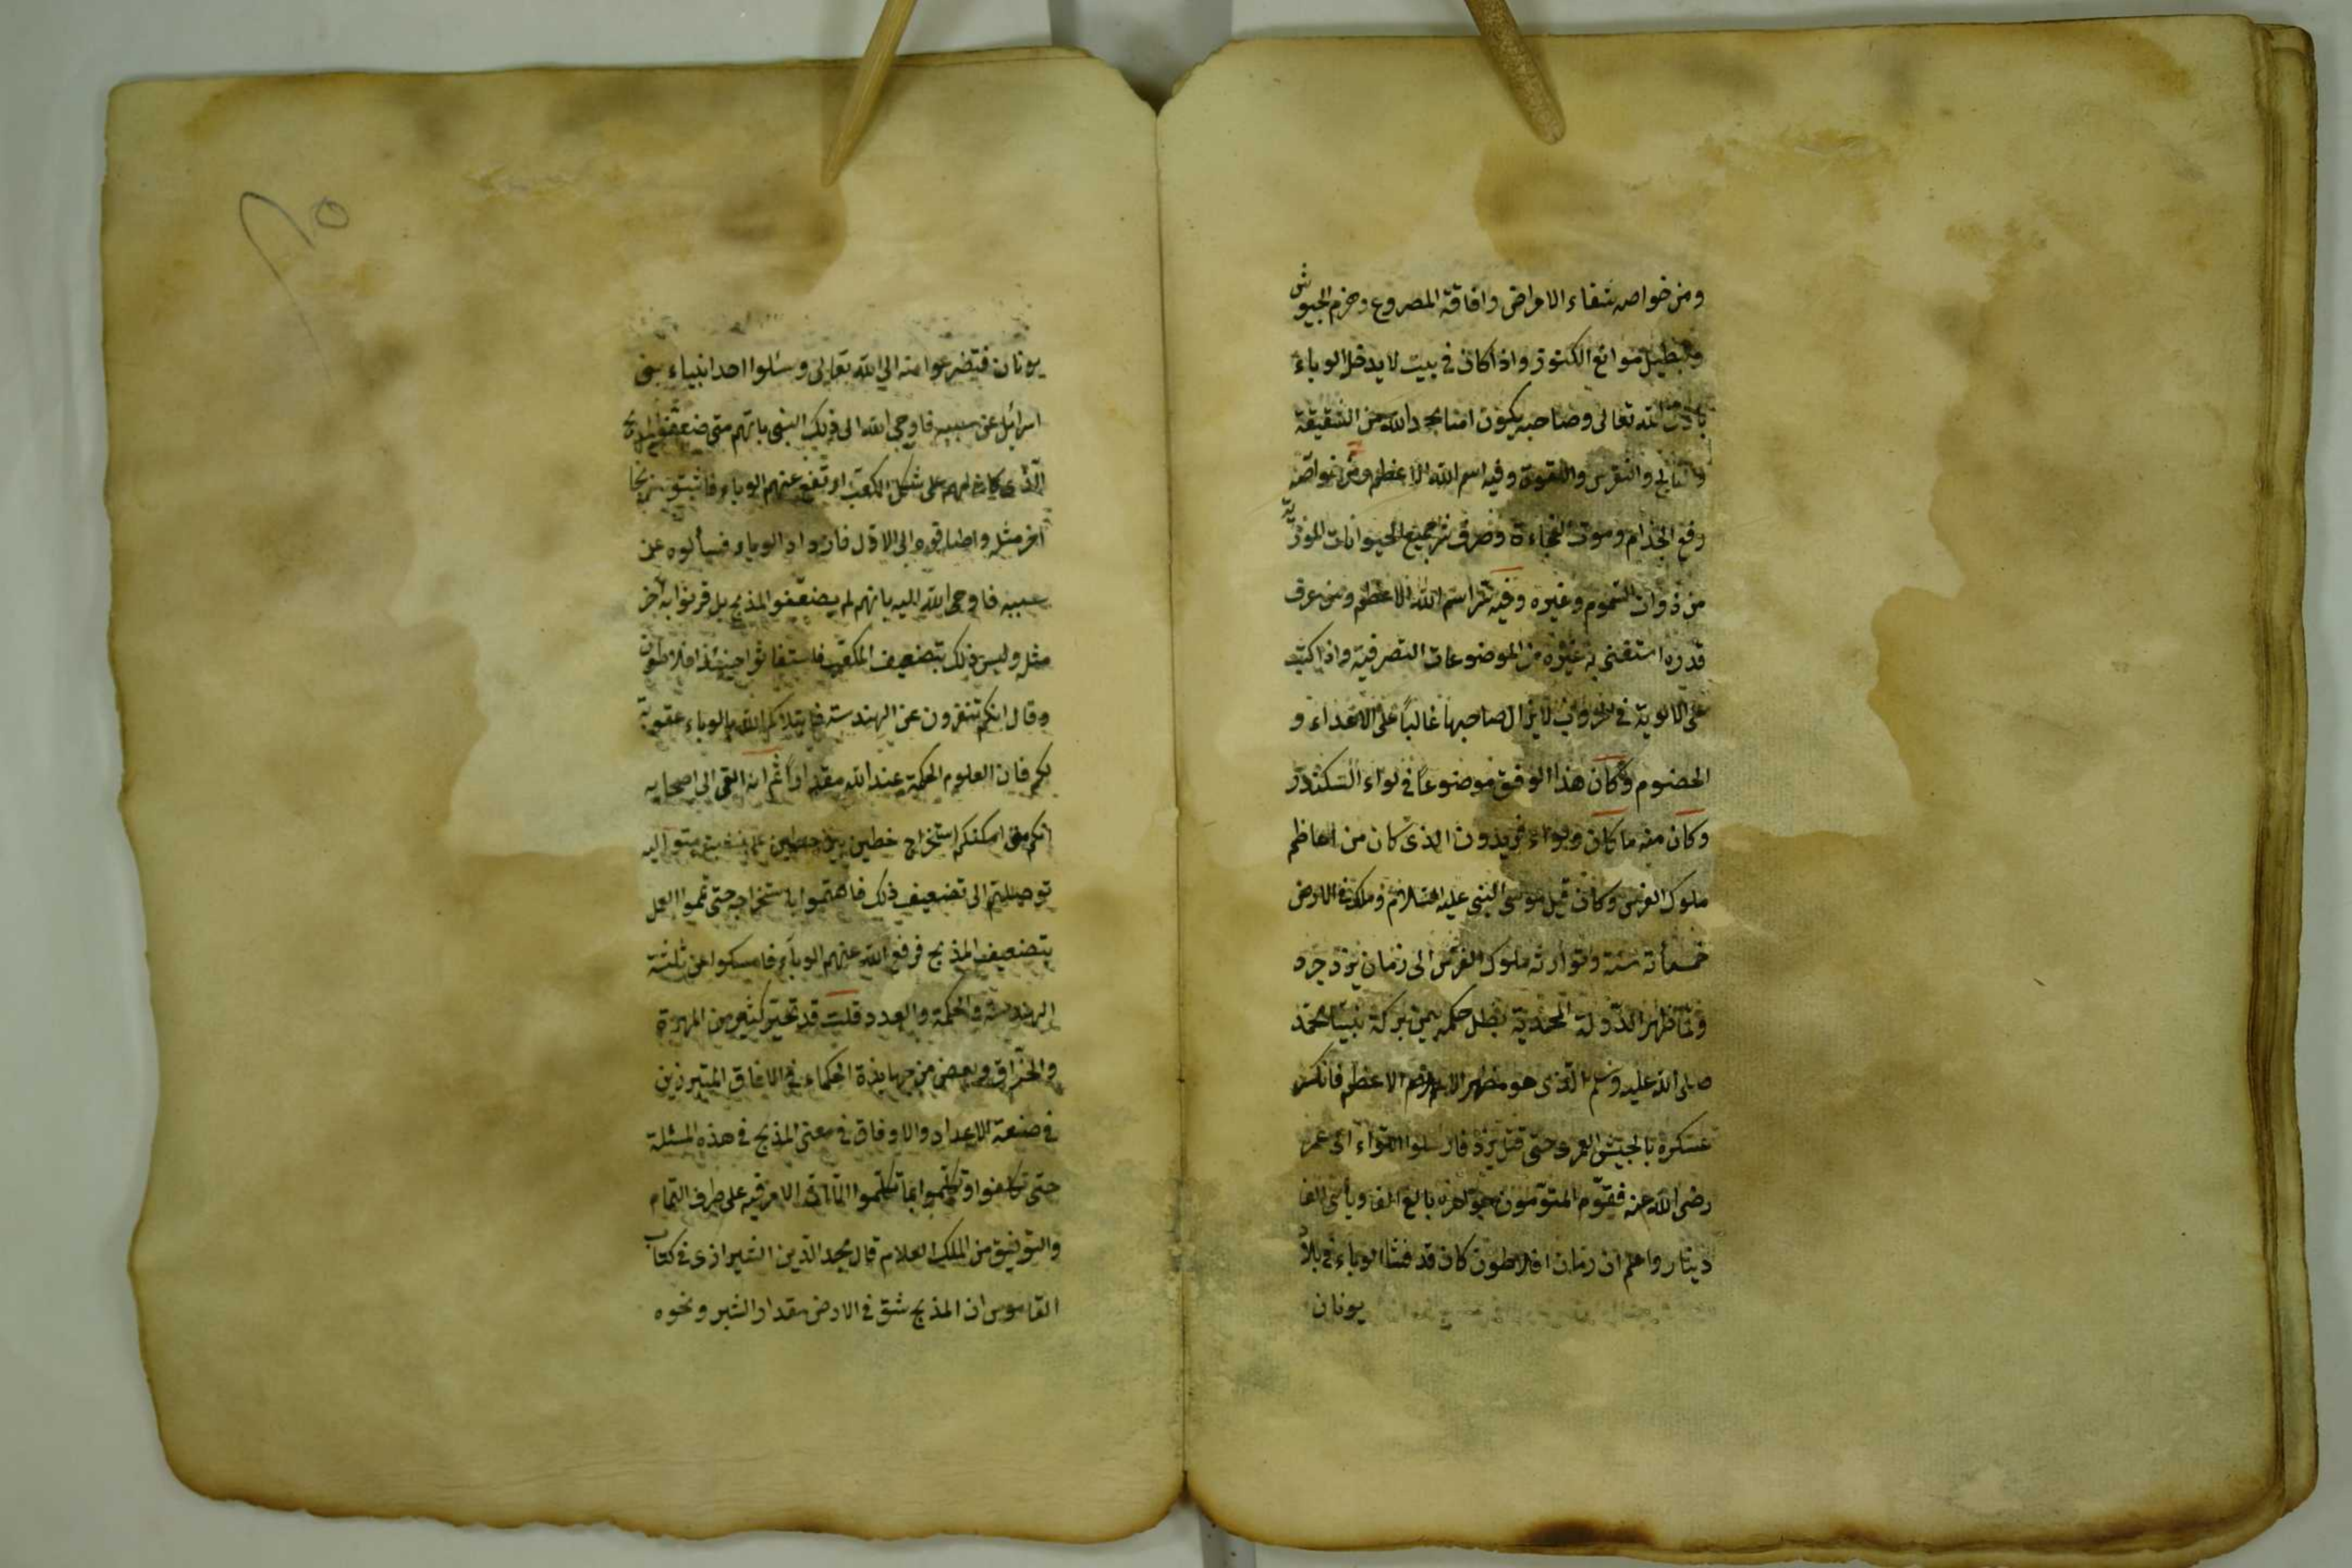 ومن خواصه شفاء الامراض وافاقة المصروع وهزم الجيوش
وتبطيل موانع الكنوز واذا كان في بيت لا يدخل الوباء
باذن الله تعالى وصاحبه يكون امنا بحمد الله من الشقيقة
والفالج والنقرس واللقوة وفيه اسم الله الاعظم ومن خواصه
دفع الجذام وموت الفجاءة وصرف شر جميع الحيوانات الموذية
من ذوات السموم وغيره وفيه سر اسم الله الاعظم ومن عرف
قدره استغنى به عن غيره من الموضوعات التصرفية واذا كتب
على الالوية في الحروب لا يزال صاحبها غالباً على الاعداء و
الخصوم وكان هذا الوفق موضوعاً في لواء السكندر
وكان معه ما كان ولواء فريدون الذى كان من اعاظم
ملوك الفرس وكان قبل موسى النبى عليه السلام وملكه في الارض
خمسمأته سنة وتوارثه ملوك الفرس الى زمان يزدجرد
ولما ظهر الدولة المحمدية بطل حكمه بيمن بركة نبينا محمد
صلى الله عليه وسلم الذى هو مظهر الاسم الاعظم فانكسر
عسكره بالجيش العمرى حتى قتل يزد فارسلوا اللواء الى عمر
رضى الله عنه فقوّم المقومون جواهره بالغ الفا ويأتى الفا
دينار واعلم ان زمان افلاطون كان قد فشا الوباء في بلاد
يونان
يونان فتضرعوا منه الى الله تعالى وسئلوا احد انبياء بنى
اسرائيل عن سببه فاوحى الله الى ذلك النبى بانهم متى ضعفوا المذبح
الذى كان لهم على شكل المكعب ارتفع عنهم الوباء فاثبتوا مذبحا
اخر مثله واضافوه الى الاول فازداد الوباء فسألوه عن
سببه فاوحى الله اليه بانهم لم يضعفوا المذبح بل قرنوا به اخر
مثله وليس ذلك بتضعيف المكعب فاستغاثوا حينئذ افلاطون
وقال انكم تنفرون عن الهندسة فابتلاكم الله بالوباء عقوبة
لكم فان العلوم الحكمية عند الله مقداراً ثم انه القى الى اصحابه
انكم متى امكنكم استخراج خطين بين خطين على نسبة متوالية
توصلتم الى تضعيف ذلك فاهتموا باستخراجه حتى تموا العمل
بتضعيف المذبح فرفع الله عنهم الوباء فامسكوا عن ثلثة
الهندسة والحكمة والعدد قلت قد تحير كثير من المهرة
والحذاق وبعض من جهابذة الحكماء في الافاق المتبرزين
في صنعة الاعداد والاوفاق في معنى المذبح في هذه المسئلة
حتى تكلفوا وتكلموا بما تكلموا الامر فيه على طرف التمام
والتوفيق من الملك العلام قال مجد الدين الشيرازى في كتاب
القاموس ان المذبح شق في الارض مقدار الشبر ونحوه